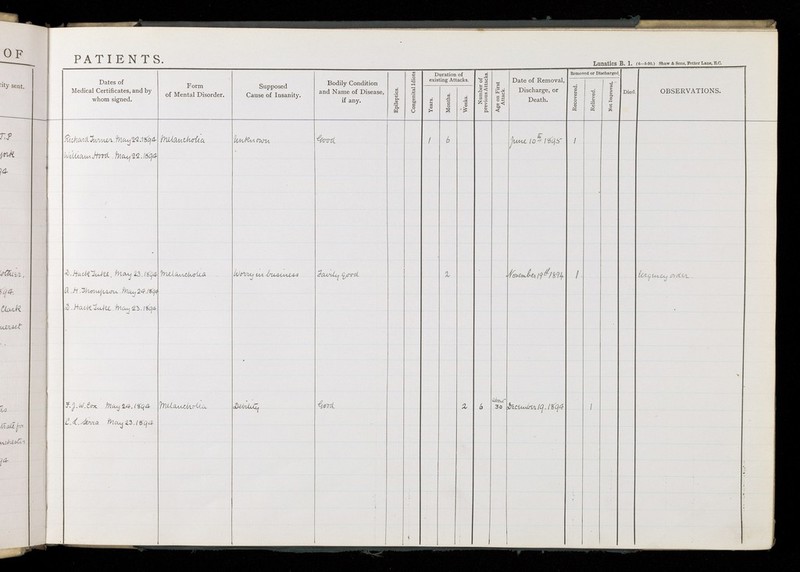 OF
PATIENTS.
Lunatics B. 1. Shaw & Sons, Fetter Lane, E.C.
ity sent.
Dates of
Medical Certificates, and by
whom signed.
Form
of Mental Disorder.
Supposed
Cause of Insanity.
Bodily Condition
and Name of Disease,
if any.
Epileptics.
Congenital Idiots
Duration of
existing Attacks.
Years.
Months.
Weeks.
Number of
previous Attacks.
Age on First
Attack.
Date of Removal,
Discharge, or
Death.
Removed or Discharged
Recovered.
Relieved.
Not Improved.
Died.
OBSERVATIONS.
Richard Turner. May 22. 1894 Melancholia Unknown Good 1 6 June 10th 1895 1
William Hood May 22. 1894
D. Hack Tuke. May 23. 1894 Melancholia Worry in business Fairly Good 2 November 19th 1894 1 Urgency order
A. H. Thompson. May 24. 1894
D. Hack Tuke. May 23. 1894
May 24. 1894 Melancholia Debility Good 2 6 about 30 December 19. 1894 1
May 23. 1894